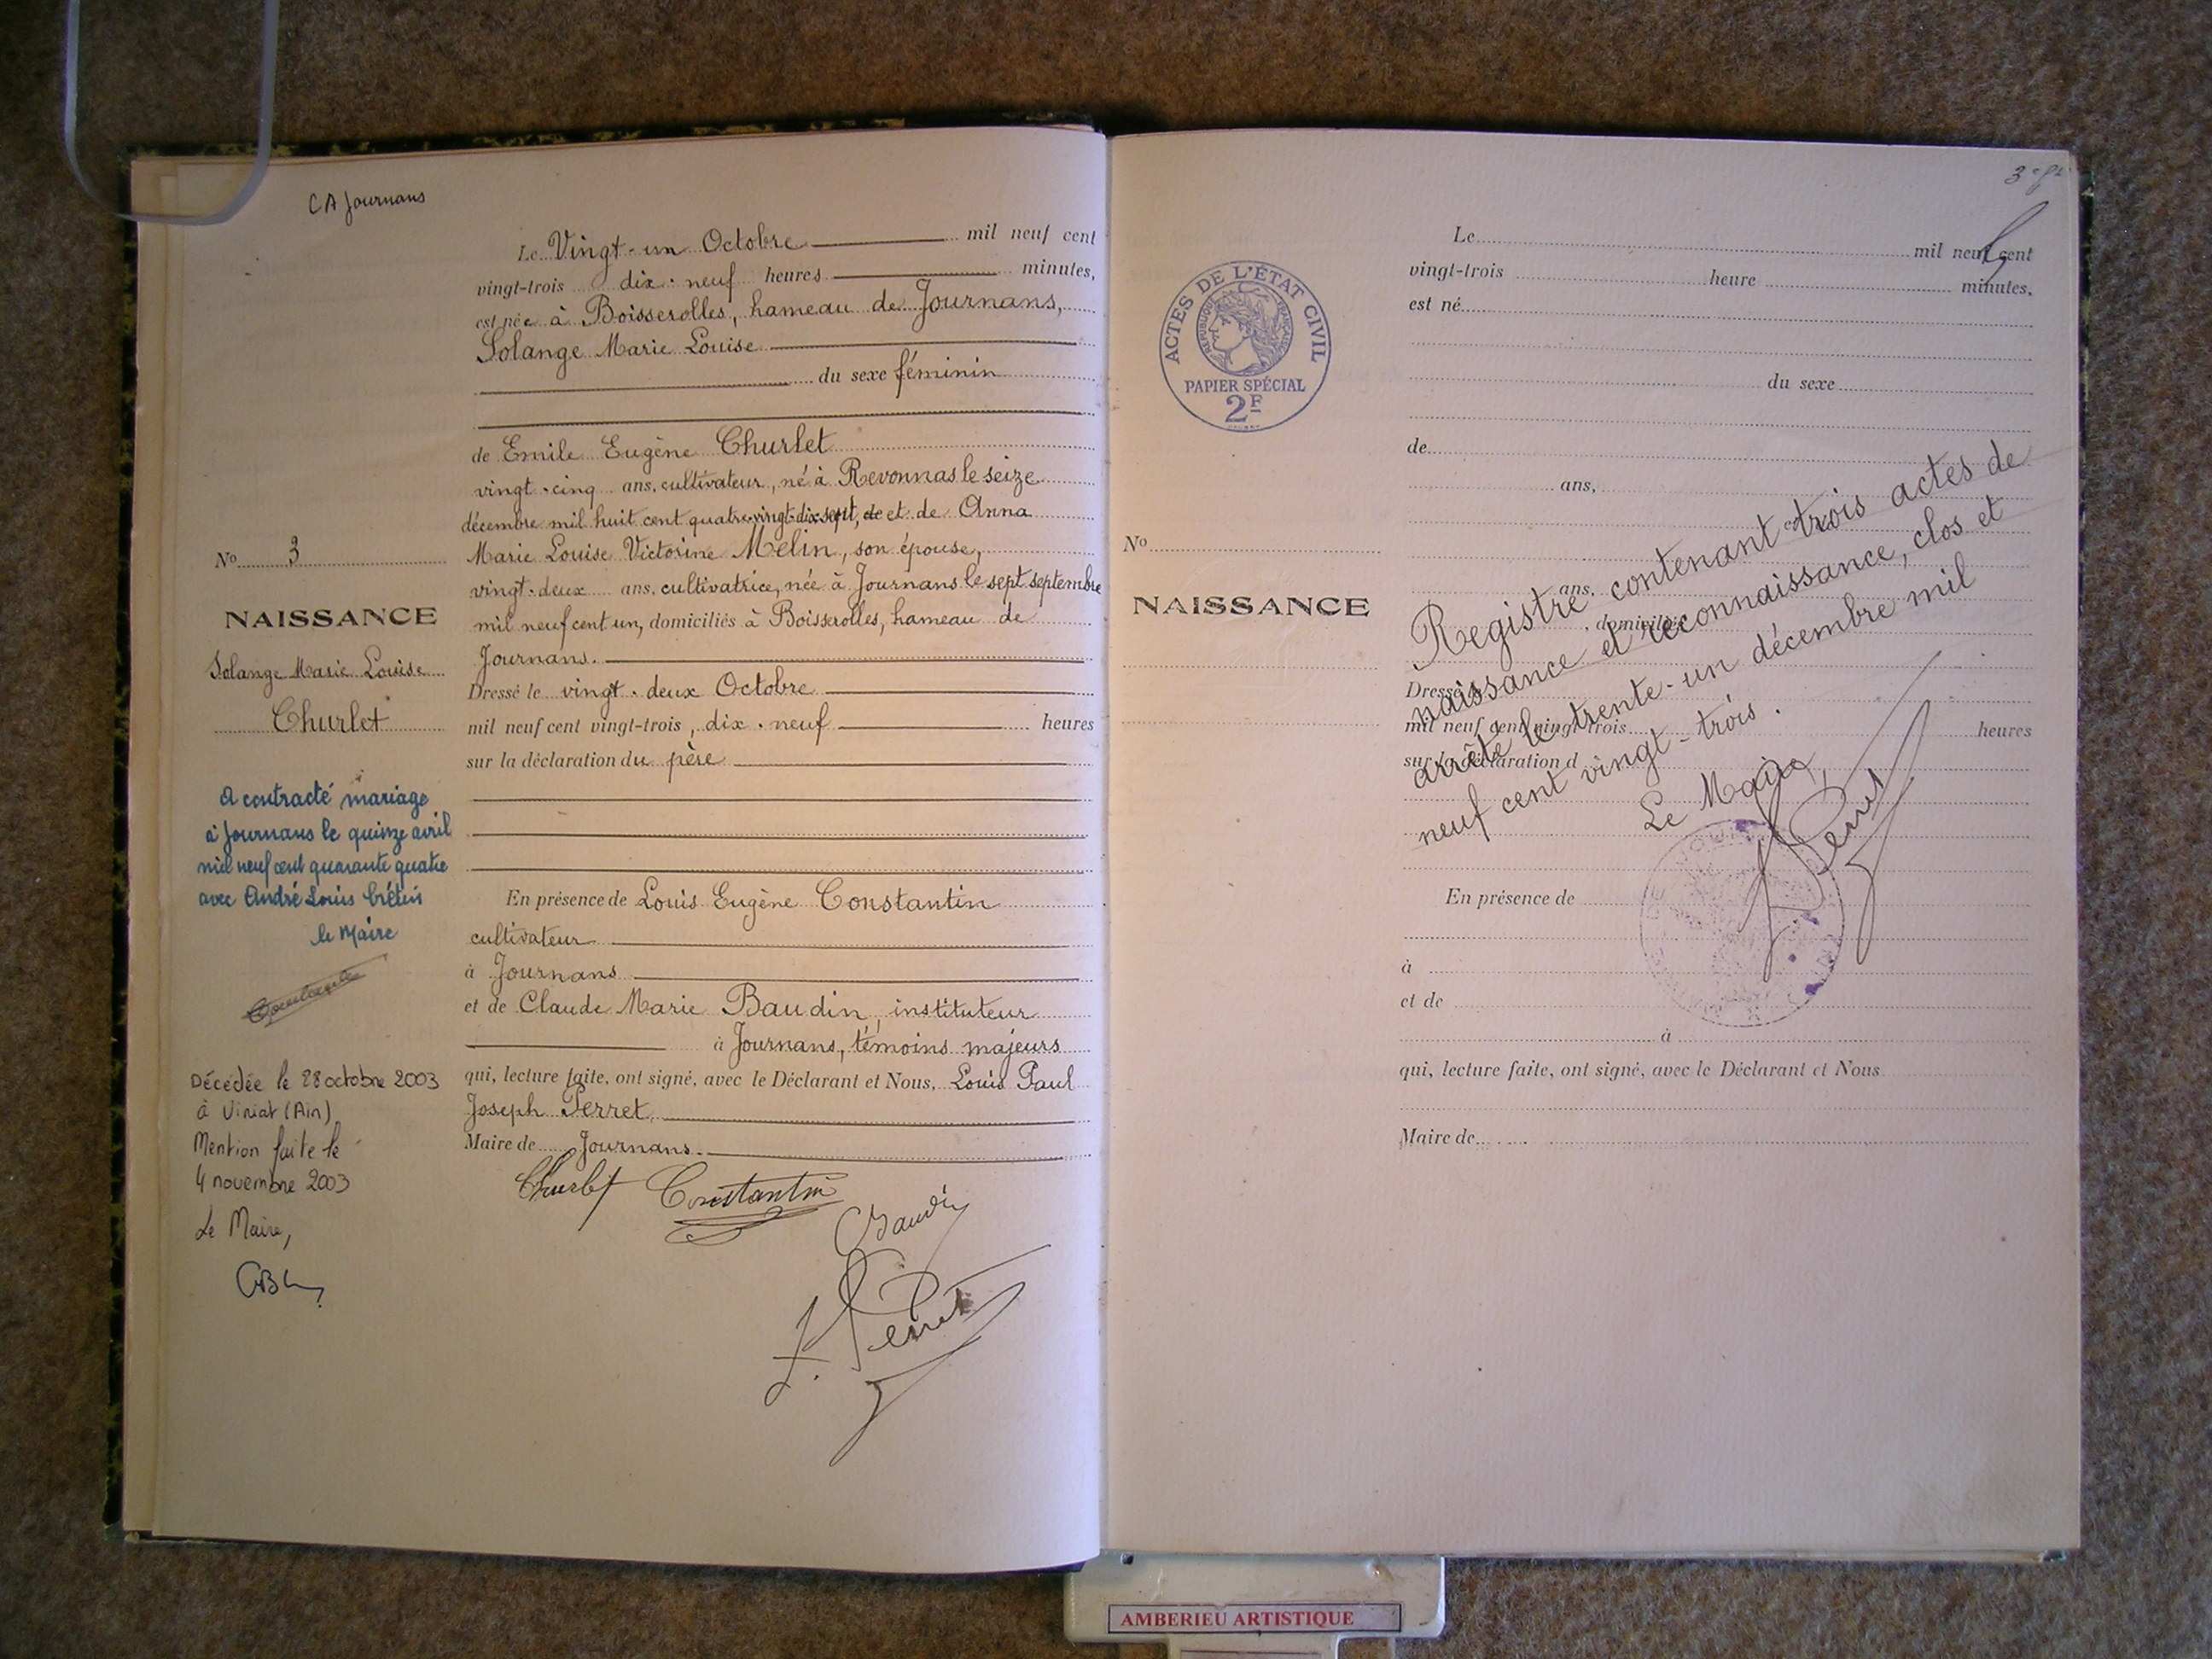 CA Journans
Le Vingt-un Octobre mil neuf cent
vingt-trois dix-neuf heures minutes,
est née à Boisserolles, hameau de Journans,
Solange Marie Louise
du sexe féminin
de Emile Eugène Churlet
vingt-cinq ans, cultivateur, né à Revonnas le seize
décembre mil huit cent quatre-vingt-dix-sept, de et de Anna
Marie Louise Victorine Melin, son épouse,
vingt-deux ans, cultivatrice, née à Journans le sept septembre
mil neuf cent un, domiciliés à Boisserolles, hameau de
Journans.
Dressé le vingt-deux Octobre
mil neuf cent vingt-trois, dix-neuf heures
sur la déclaration du père
En présence de Louis Eugène Constantin
cultivateur
à Journans
et de Claude Marie Baudin, instituteur
à Journans, témoins majeurs
qui, lecture faite, ont signé, avec le Déclarant et Nous, Louis Paul
Joseph Perret,
Maire de Journans.
Churlet Constantin
Baudin
Perret
No 3
NAISSANCE
Solange Marie Louise
Churlet
A contracté mariage
à Journans le quinze avril
mil neuf cent quarante quatre
avec André Louis
le Maire
Décédée le 28 octobre 2003
à Viriat (Ain)
Mention faite le
4 novembre 2003
Le Maire,
ACTES DE L'ÉTAT CIVIL
RÉPUBLIQUE FRANÇAISE
PAPIER SPÉCIAL
2F
No
NAISSANCE
Le mil neuf cent
vingt-trois heure minutes,
est né
du sexe
de
ans,
ans,
, domiciliés
Dressé le
mil neuf cent vingt-trois heures
sur la déclaration d
En présence de
à
et de
à
qui, lecture faite, ont signé, avec le Déclarant et Nous
Maire de
Registre contenant trois actes de
naissance et reconnaissance, clos et
arrêté le trente-un décembre mil
neuf cent vingt-trois.
Le Maire,
Perret
AMBERIEU ARTISTIQUE